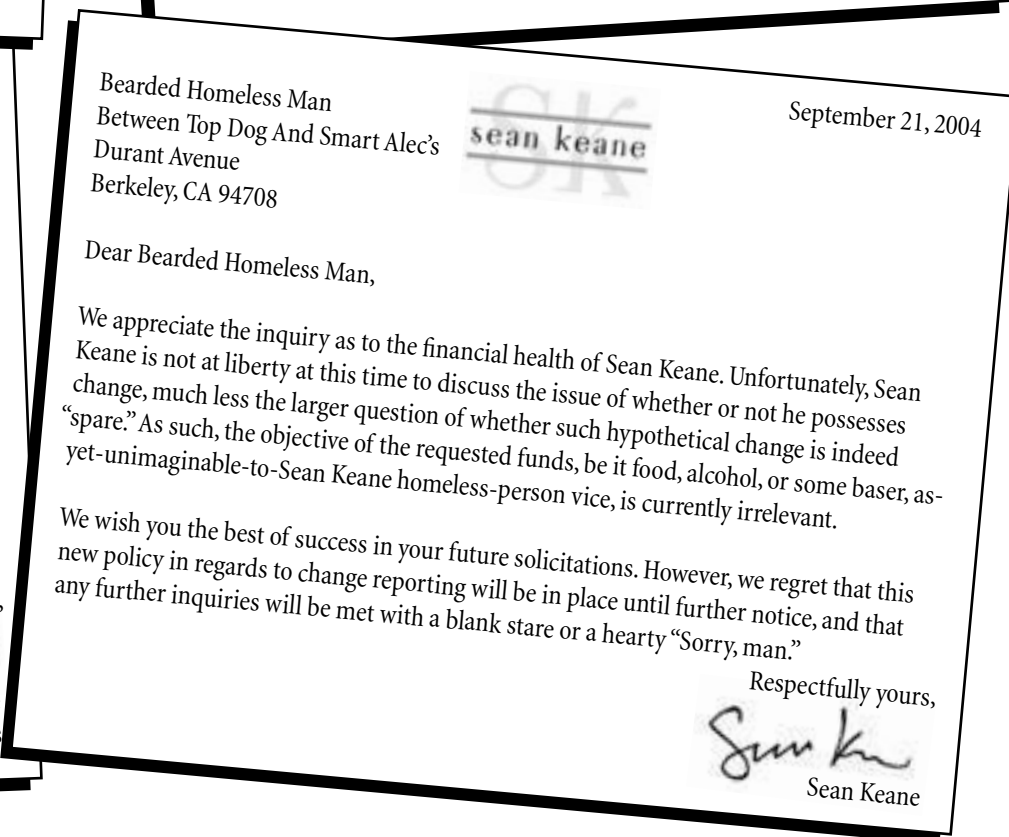 Bearded Homeless Man
Between Top Dog And Smart Alec's
Durant Avenue
Berkeley, CA 94708
SK
sean keane
September 21, 2004
Dear Bearded Homeless Man,
We appreciate the inquiry as to the financial health of Sean Keane. Unfortunately, Sean
Keane is not at liberty at this time to discuss the issue of whether or not he possesses
change, much less the larger question of whether such hypothetical change is indeed
“spare.” As such, the objective of the requested funds, be it food, alcohol, or some baser, as-
yet-unimaginable-to-Sean Keane homeless-person vice, is currently irrelevant.
We wish you the best of success in your future solicitations. However, we regret that this
new policy in regards to change reporting will be in place until further notice, and that
any further inquiries will be met with a blank stare or a hearty “Sorry, man.”
Respectfully yours,
Sean Keane
Sean Keane